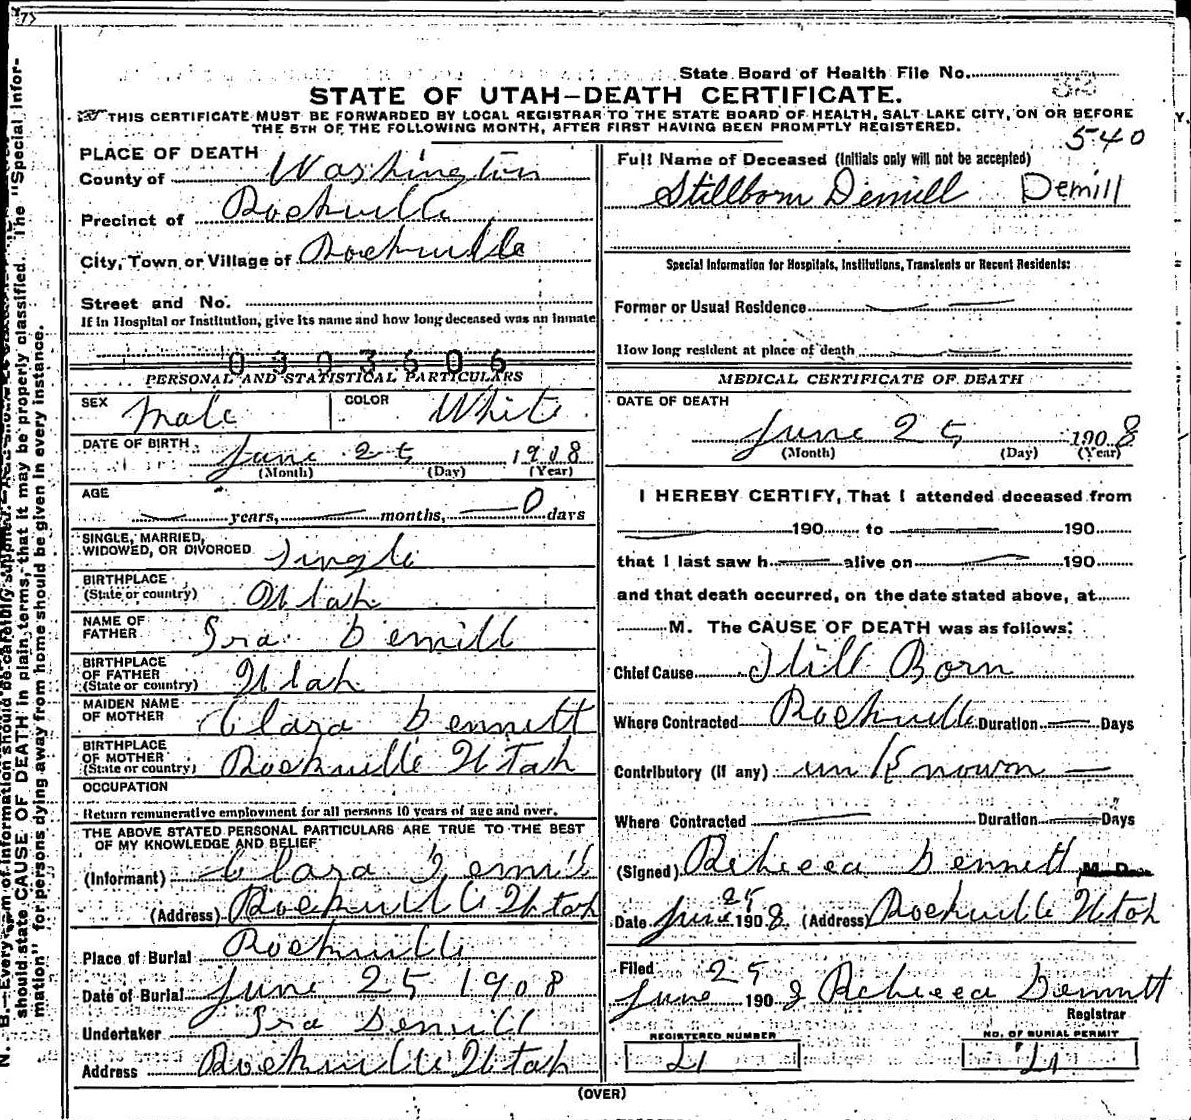 State Board of Health File No.
STATE OF UTAH—DEATH CERTIFICATE.
THIS CERTIFICATE MUST BE FORWARDED BY LOCAL REGISTRAR TO THE STATE BOARD OF HEALTH, SALT LAKE CITY, ON OR BEFORE
THE 5TH OF THE FOLLOWING MONTH, AFTER FIRST HAVING BEEN PROMPTLY REGISTERED.
540
PLACE OF DEATH
County of Washington
Precinct of Rockville
City, Town or Village of Rockville
Street and No.
If in Hospital or Institution, give its name and how long deceased was an inmate
PERSONAL AND STATISTICAL PARTICULARS
SEX Male COLOR White
DATE OF BIRTH June 25 1908
(Month) (Day) (Year)
AGE
years, months, 0 days
SINGLE, MARRIED,
WIDOWED, OR DIVORCED Single
BIRTHPLACE
(State or country) Utah
NAME OF
FATHER Ira Demill
BIRTHPLACE
OF FATHER
(State or country) Utah
MAIDEN NAME
OF MOTHER Clara Bennett
BIRTHPLACE
OF MOTHER
(State or country) Rockville Utah
OCCUPATION
Return remunerative employment for all persons 10 years of age and over.
THE ABOVE STATED PERSONAL PARTICULARS ARE TRUE TO THE BEST
OF MY KNOWLEDGE AND BELIEF
(Informant) Clara Demill
(Address) Rockville Utah
Place of Burial Rockville
Date of Burial June 25 1908
Undertaker Ira Demill
Address Rockville Utah
Full Name of Deceased (Initials only will not be accepted)
Stillborn Demill Demill
Special Information for Hospitals, Institutions, Transients or Recent Residents:
Former or Usual Residence
How long resident at place of death
MEDICAL CERTIFICATE OF DEATH
DATE OF DEATH
June 25 1908
(Month) (Day) (Year)
I HEREBY CERTIFY, That I attended deceased from
190 to 190
that I last saw h alive on 190
and that death occurred, on the date stated above, at
M. The CAUSE OF DEATH was as follows:
Chief Cause Still Born
Where Contracted Rockville Duration Days
Contributory (if any) unKnown
Where Contracted Duration Days
(Signed) Rebecca Bennett M. D.
Date June 25 1908 (Address) Rockville Utah
Filed
June 25 1908 Rebecca Bennett
Registrar
REGISTERED NUMBER NO. OF BURIAL PERMIT
(OVER)
should state CAUSE OF DEATH in plain terms, that it may be properly classified. The "Special Infor-
mation" for persons dying away from home should be given in every instance.